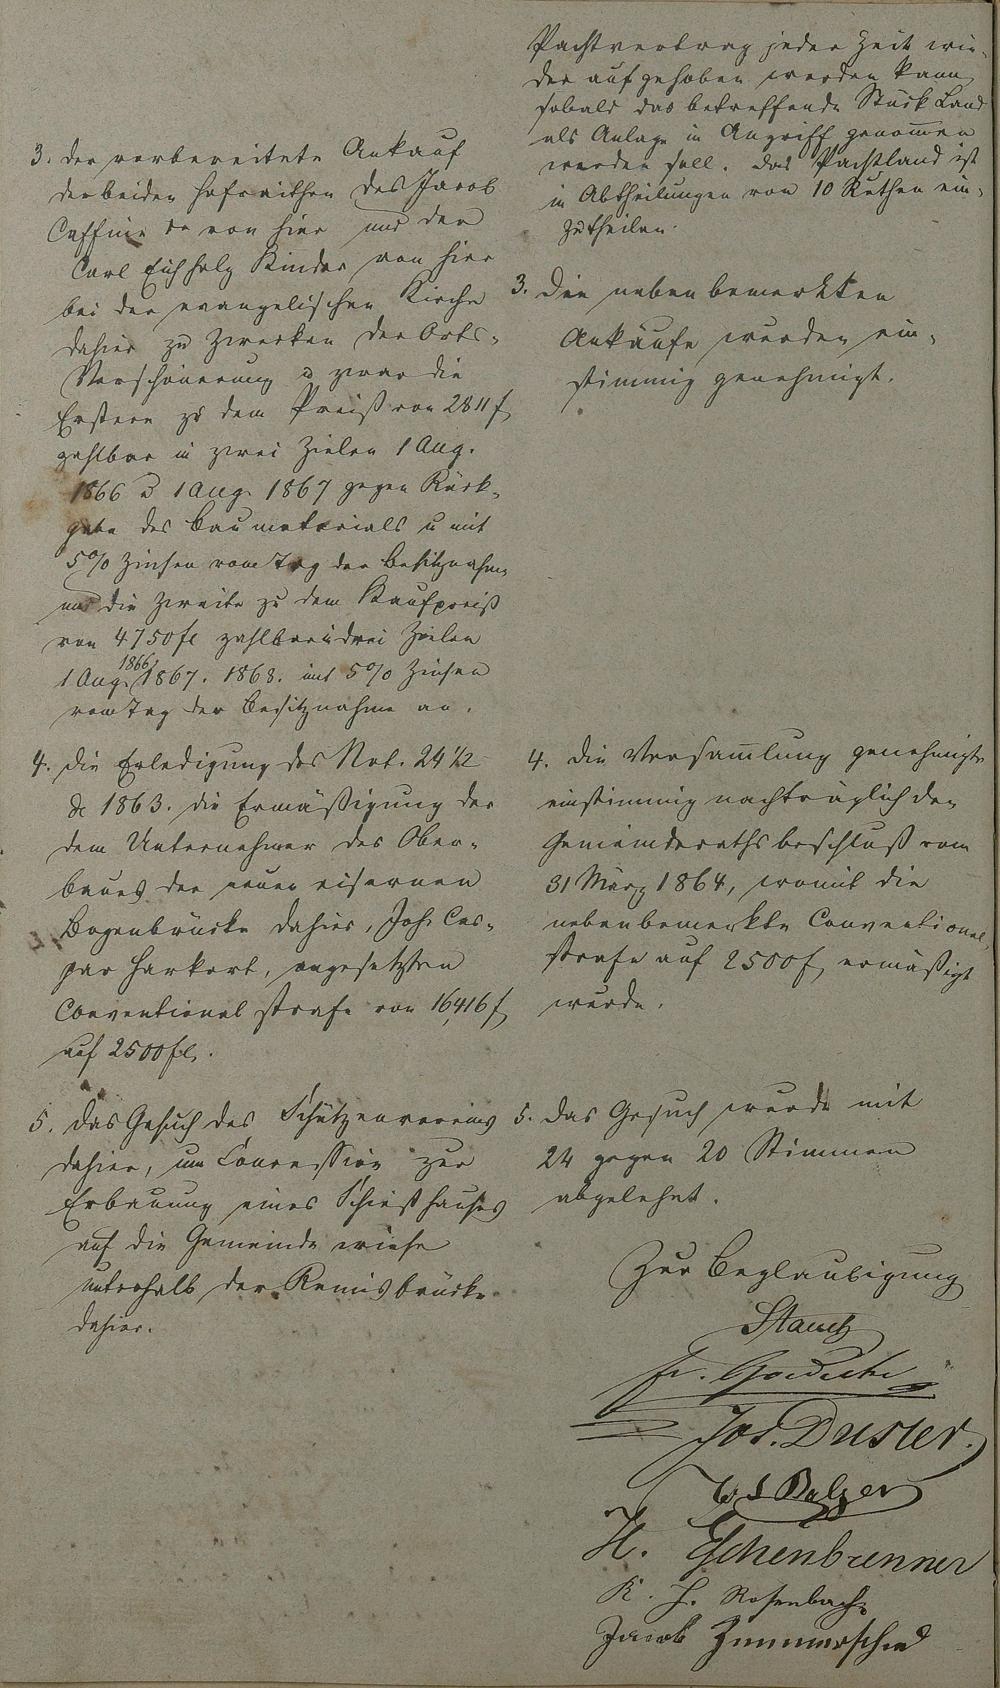 3. der vorbereitete Ankauf
der beiden Hofraithen des Jacob
von hier und der
Carl Eichholz Kinder von hier
bei der evangelischen Kirche
dahier zu Zwecken der Orts-
Verschönerung u zwar die
Erstere zu dem Preiß von 2811 f
zahlbar in zwei Zielen 1 Aug.
1866 u 1 Aug. 1867 gegen Rück-
gabe des Baumaterials u mit
5% Zinsen vom Tag der Besitznahme
und die Zweite zu dem Kaufpreiß
von 4750 fl zahlbar in drei Zielen
1 Aug. 1866, 1867. 1868. mit 5% Zinsen
vom Tag der Besitznahme an.
4. Die Erledigung des Not. 24 1/2
de 1863. die Ermäßigung der
dem Unternehmer des Ober-
baues der neuen eisernen
Bogenbrücke dahier, Joh. Cas-
par Harkort, angesetzten
Conventionalstrafe von 16,416 f
auf 2500 fl.
5. Das Gesuch des Schützenvereins
dahier, um Concession zur
Erbauung eines Schießhauses
auf die Gemeindewiese
unterhalb der Remisbrücke
dahier.
Pachtvertrag jeder Zeit wie-
der aufgehoben werden kann,
sobald das betreffende Stück Land
als Anlage in Angriff genom̅en
werden soll. Das Pachtland ist
in Abtheilungen von 10 Ruthen ein-
zutheilen.
3. Die nebenbemerkten
Ankäufe wurden ein-
stimmig genehmigt.
4. Die Versam̅lung genehmigte
einstimmig nachträglich den
Gemeinderathsbeschluß vom
31 März 1864, womit die
nebenbemerkte Conventional-
strafe auf 2500 f ermäßigt
wurde.
5. Das Gesuch wurde mit
24 gegen 20 Stimmen
abgelehnt.
Zur Beglaubigung
Stauch
Fr.
Jos. Duster.
Balzer
H. Eschenbrenner
K. H. Rosenbach
Jacob Zimmerschied